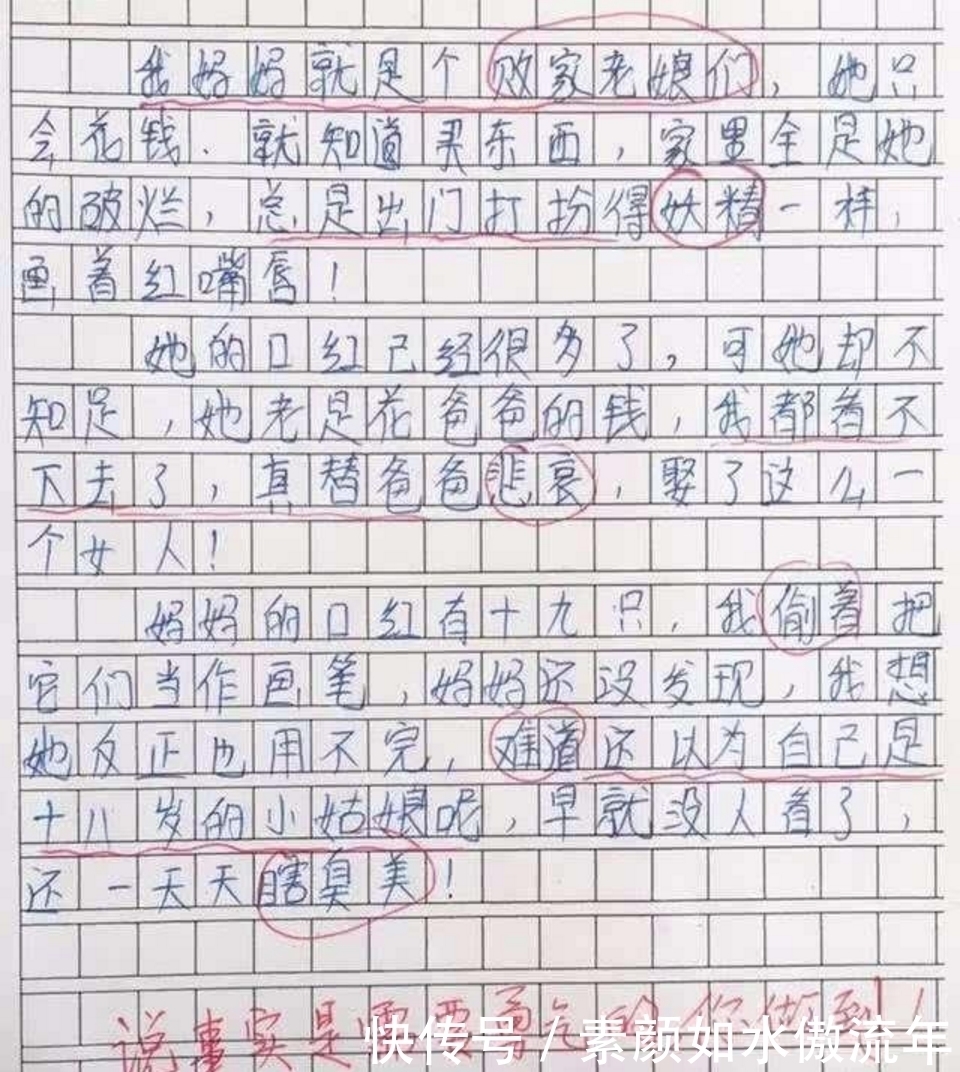 我妈妈就是个败家老娘们，她只
会花钱．就知道买东西，家里全是她
的破烂，总是出门打扮得妖精一样，
画着红嘴唇！
她的口红已经很多了，可她却不
知足，她老是花爸爸的钱，我都看不
下去了，真替爸爸悲哀，娶了这么一
个女人！
妈妈的口红有十九只，我偷着把
它们当作画笔，妈妈还没发现，我想
她反正也用不完，难道还以为自己是
十八岁的小姑娘呢，早就没人看了，
还一天天瞎臭美！
说事实是需要勇气的，你做到！
快传号/素颜如水傲流年